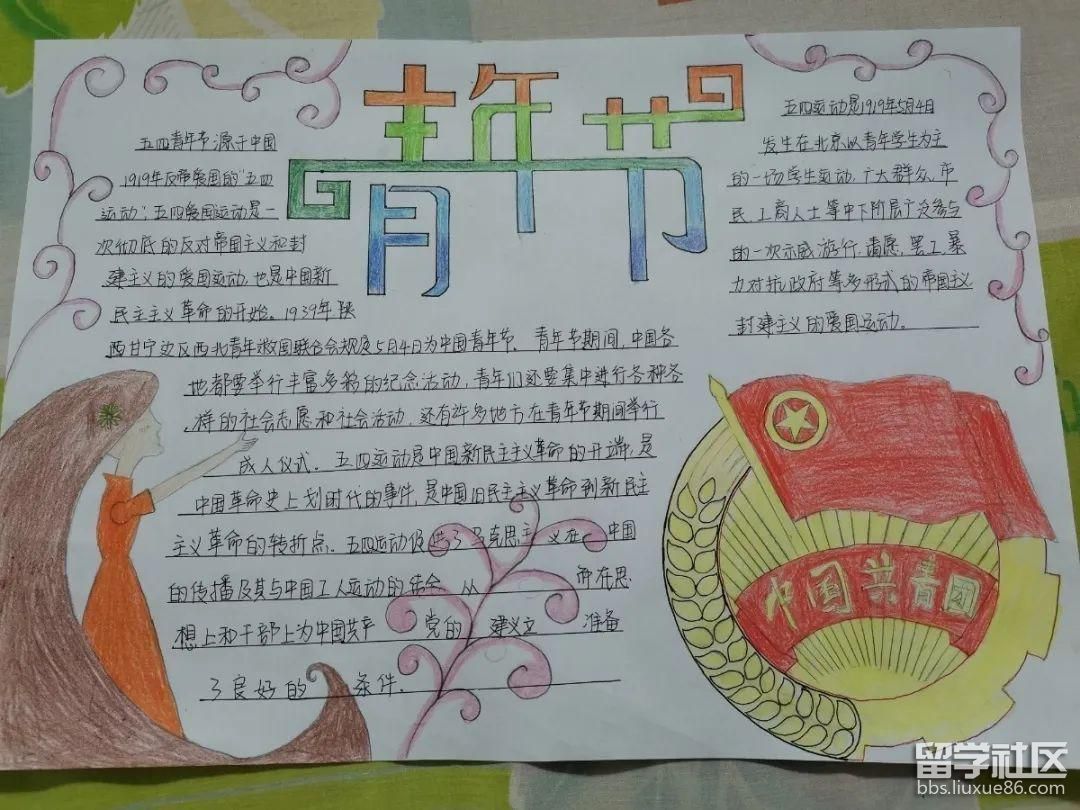 青年节
五四青年节源于中国
1919年反帝爱国的"五四
运动",五四爱国运动是一
次彻底的反对帝国主义和封
建主义的爱国运动,也是中国新
民主主义革命的开始。1939年陕
西甘宁边区西北青年救国联合会规定5月4日为中国青年节.青年节期间,中国各
地都要举行丰富多彩的纪念活动,青年们还要集中进行各种各
样的社会志愿和社会活动,还有许多地方在青年节期间举行
成人仪式。五四运动是中国新民主主义革命的开端,是
中国革命史上划时代的事件,是中国旧民主主义革命到新民主
主义革命的转折点。五四运动促进了马克思主义在中国
的传播及其与中国工人运动的结合 从 而在思
想上和干部上为中国共产 党的 建义立 准备
了良好的 条件.
五四运动是1919年5月4日
发生在北京以青年学生为主
的一场学生运动,广大群众、市
民、工商人士等中下阶层广泛参与
的一次示威游行,请愿,罢工、暴
力对抗政府等多形式的帝国主义
封建主义的爱国运动。
中国共青团
留学社区
bbs.liuxue86.com